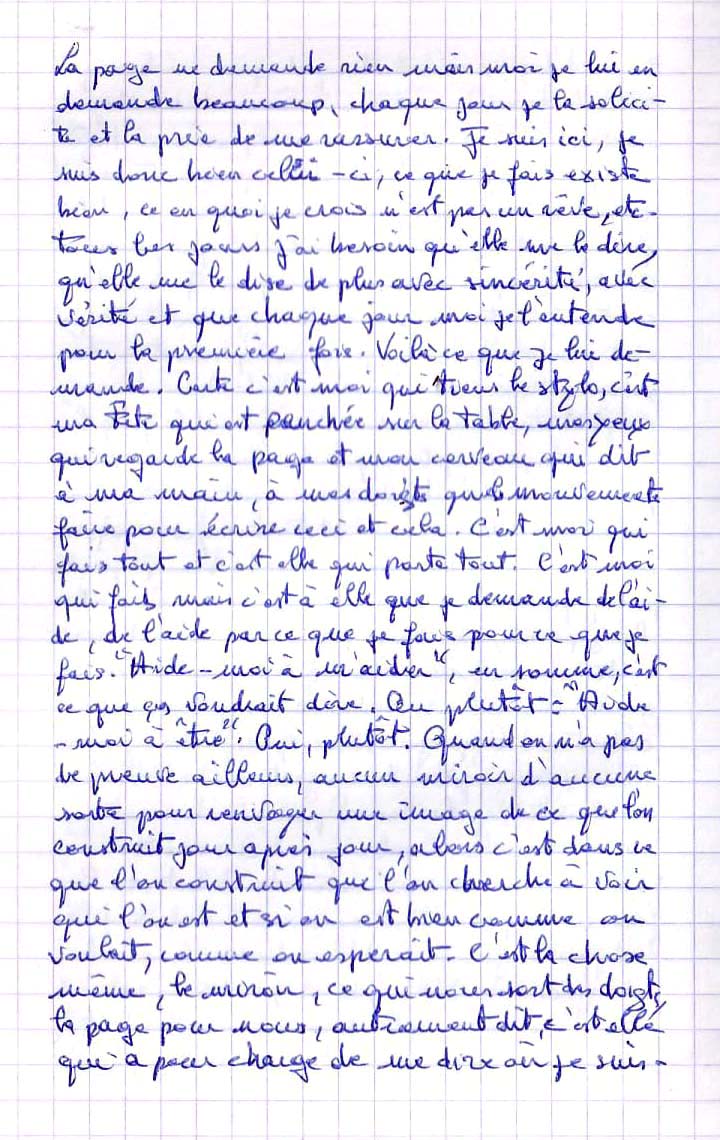 La page ne demande rien mais moi je lui en
demande beaucoup, chaque jour je la solici-
te et la prie de me rassurer. Je suis ici, je
suis donc bien celui-ci, ce que je fais existe
bien, ce en quoi je crois n'est pas un rêve, etc.
Tous les jours j'ai besoin qu'elle me le dise,
qu'elle me le dise de plus avec sincérité, avec
vérité et que chaque jour moi je l'entende
pour la première fois. Voilà ce que je lui de-
mande. Certe c'est moi qui tiens le stylo, c'est
ma tête qui est penchée sur la table, mes yeux
qui regarde la page et mon cerveau qui dit
à ma main, à mes doigts quels mouvements
faire pour écrire ceci et cela. C'est moi qui
fais tout et c'est elle qui porte tout. C'est moi
qui fais mais c'est à elle que je demande de l'ai-
de, de l'aide par ce que je fais pour ce que je
fais. "Aide-moi à m'aider", en somme, c'est
ce que ça voudrait dire. Ou plutôt : "Aide
-moi à être". Oui, plutôt. Quand on n'a pas
de preuve ailleurs, aucun miroir d'aucune
sorte pour renvoyer une image de ce que l'on
construit jour après jour, alors c'est dans ce
que l'on construit que l'on cherche à voir
qui l'on est et si on est bien comme on
voulait, comme on esperait. C'est la chose
même, le miroir, ce qui nous sort des doigts,
la page pour nous, autrement dit, c'est elle
qui a pour charge de me dire où je suis.